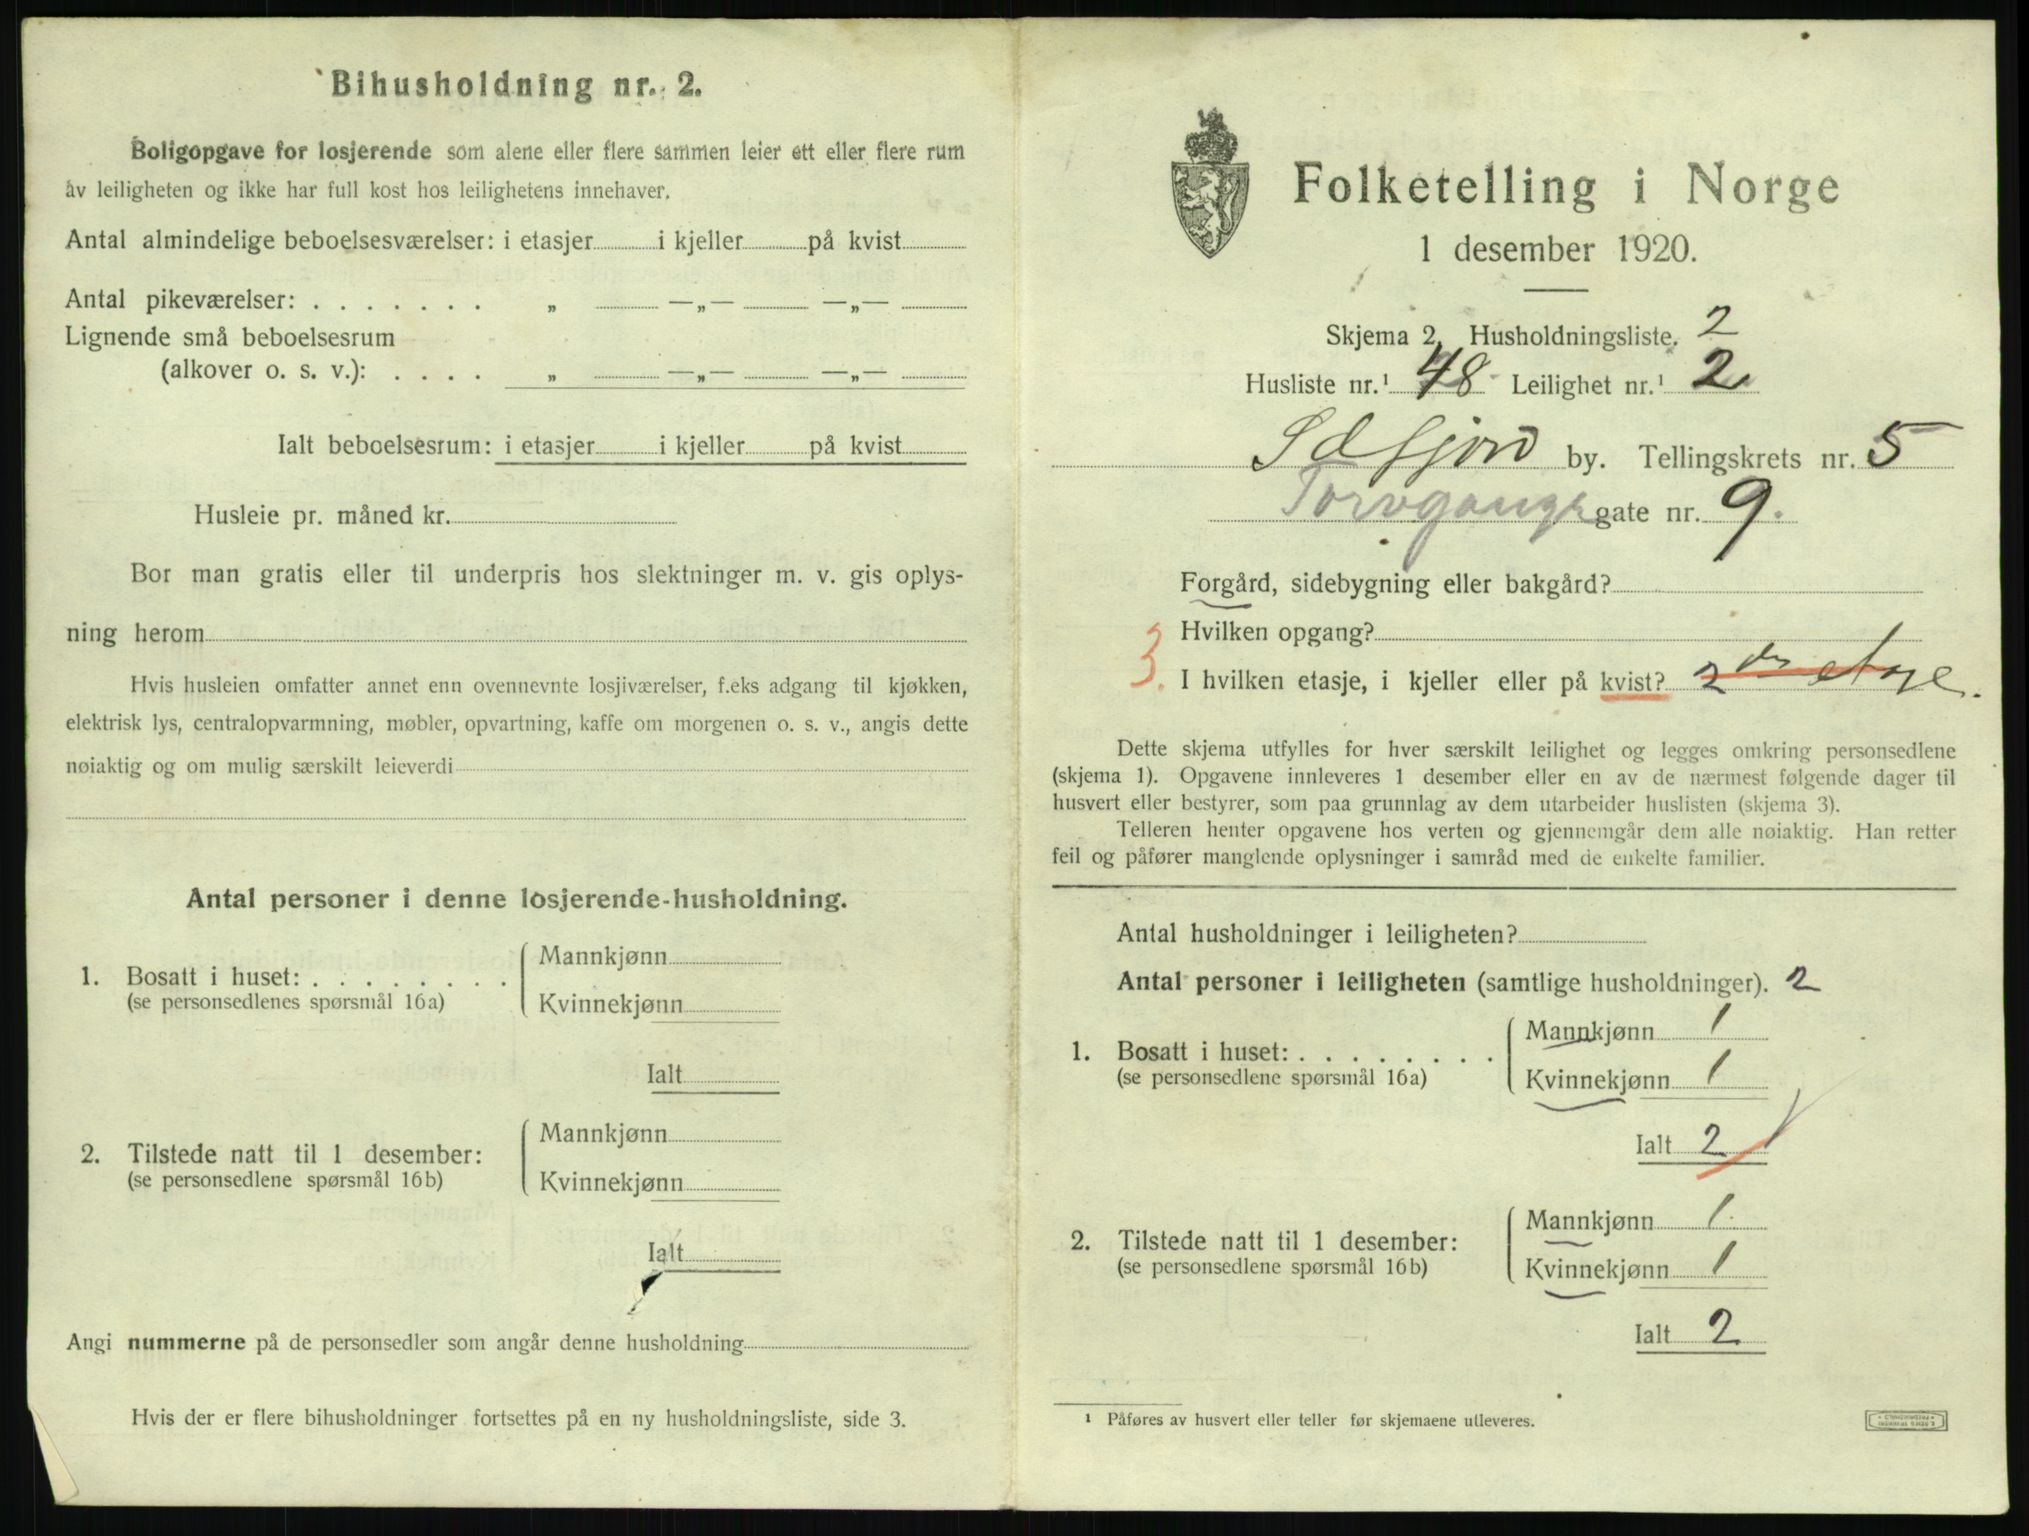 Bihusholdning nr. 2.
Boligopgave for losjerende som alene eller flere sammen leier ett eller flere rum
av leiligheten og ikke har full kost hos leilighetens innehaver.
Antal almindelige beboelsesværelser: i etasjer i kjeller på kvist
Antal pikeværelser: . . . . . . . „ —„— —„—
Lignende små beboelsesrum
(alkover o. s. v.): . . . . „ —„— —„—
Ialt beboelsesrum: i etasjer i kjeller på kvist
Husleie pr. måned kr.
Bor man gratis eller til underpris hos slektninger m. v. gis oplys-
ning herom
Hvis husleien omfatter annet enn ovennevnte losjiværelser, f.eks adgang til kjøkken,
elektrisk lys, centralopvarmning, møbler, opvartning, kaffe om morgenen o. s. v., angis dette
nøiaktig og om mulig særskilt leieverdi
Antal personer i denne losjerende-husholdning.
1. Bosatt i huset: . . . . . . . .
(se personsedlenes spørsmål 16a)
Mannkjønn
Kvinnekjønn
Ialt
2. Tilstede natt til 1 desember:
(se personsedlene spørsmål 16b)
Mannkjønn
Kvinnekjønn
Ialt
Angi nummerne på de personsedler som angår denne husholdning
Hvis der er flere bihusholdninger fortsettes på en ny husholdningsliste, side 3.
Folketelling i Norge
1 desember 1920.
Skjema 2. Husholdningsliste. 2
Husliste nr.¹ 48 Leilighet nr.¹ 2
by. Tellingskrets nr. 5
gate nr. 9.
Forgård, sidebygning eller bakgård?
Hvilken opgang?
3. I hvilken etasje, i kjeller eller på kvist? 2 etage.
Dette skjema utfylles for hver særskilt leilighet og legges omkring personsedlene
(skjema 1). Opgavene innleveres 1 desember eller en av de nærmest følgende dager til
husvert eller bestyrer, som paa grunnlag av dem utarbeider huslisten (skjema 3).
Telleren henter opgavene hos verten og gjennemgår dem alle nøiaktig. Han retter
feil og påfører manglende oplysninger i samråd med de enkelte familier.
Antal husholdninger i leiligheten?
Antal personer i leiligheten (samtlige husholdninger). 2
1. Bosatt i huset: . . . . . . . .
(se personsedlene spørsmål 16a)
Mannkjønn 1
Kvinnekjønn 1
Ialt 2
2. Tilstede natt til 1 desember:
(se personsedlene spørsmål 16b)
Mannkjønn 1
Kvinnekjønn 1
Ialt 2
¹ Påføres av husvert eller teller før skjemaene utleveres.